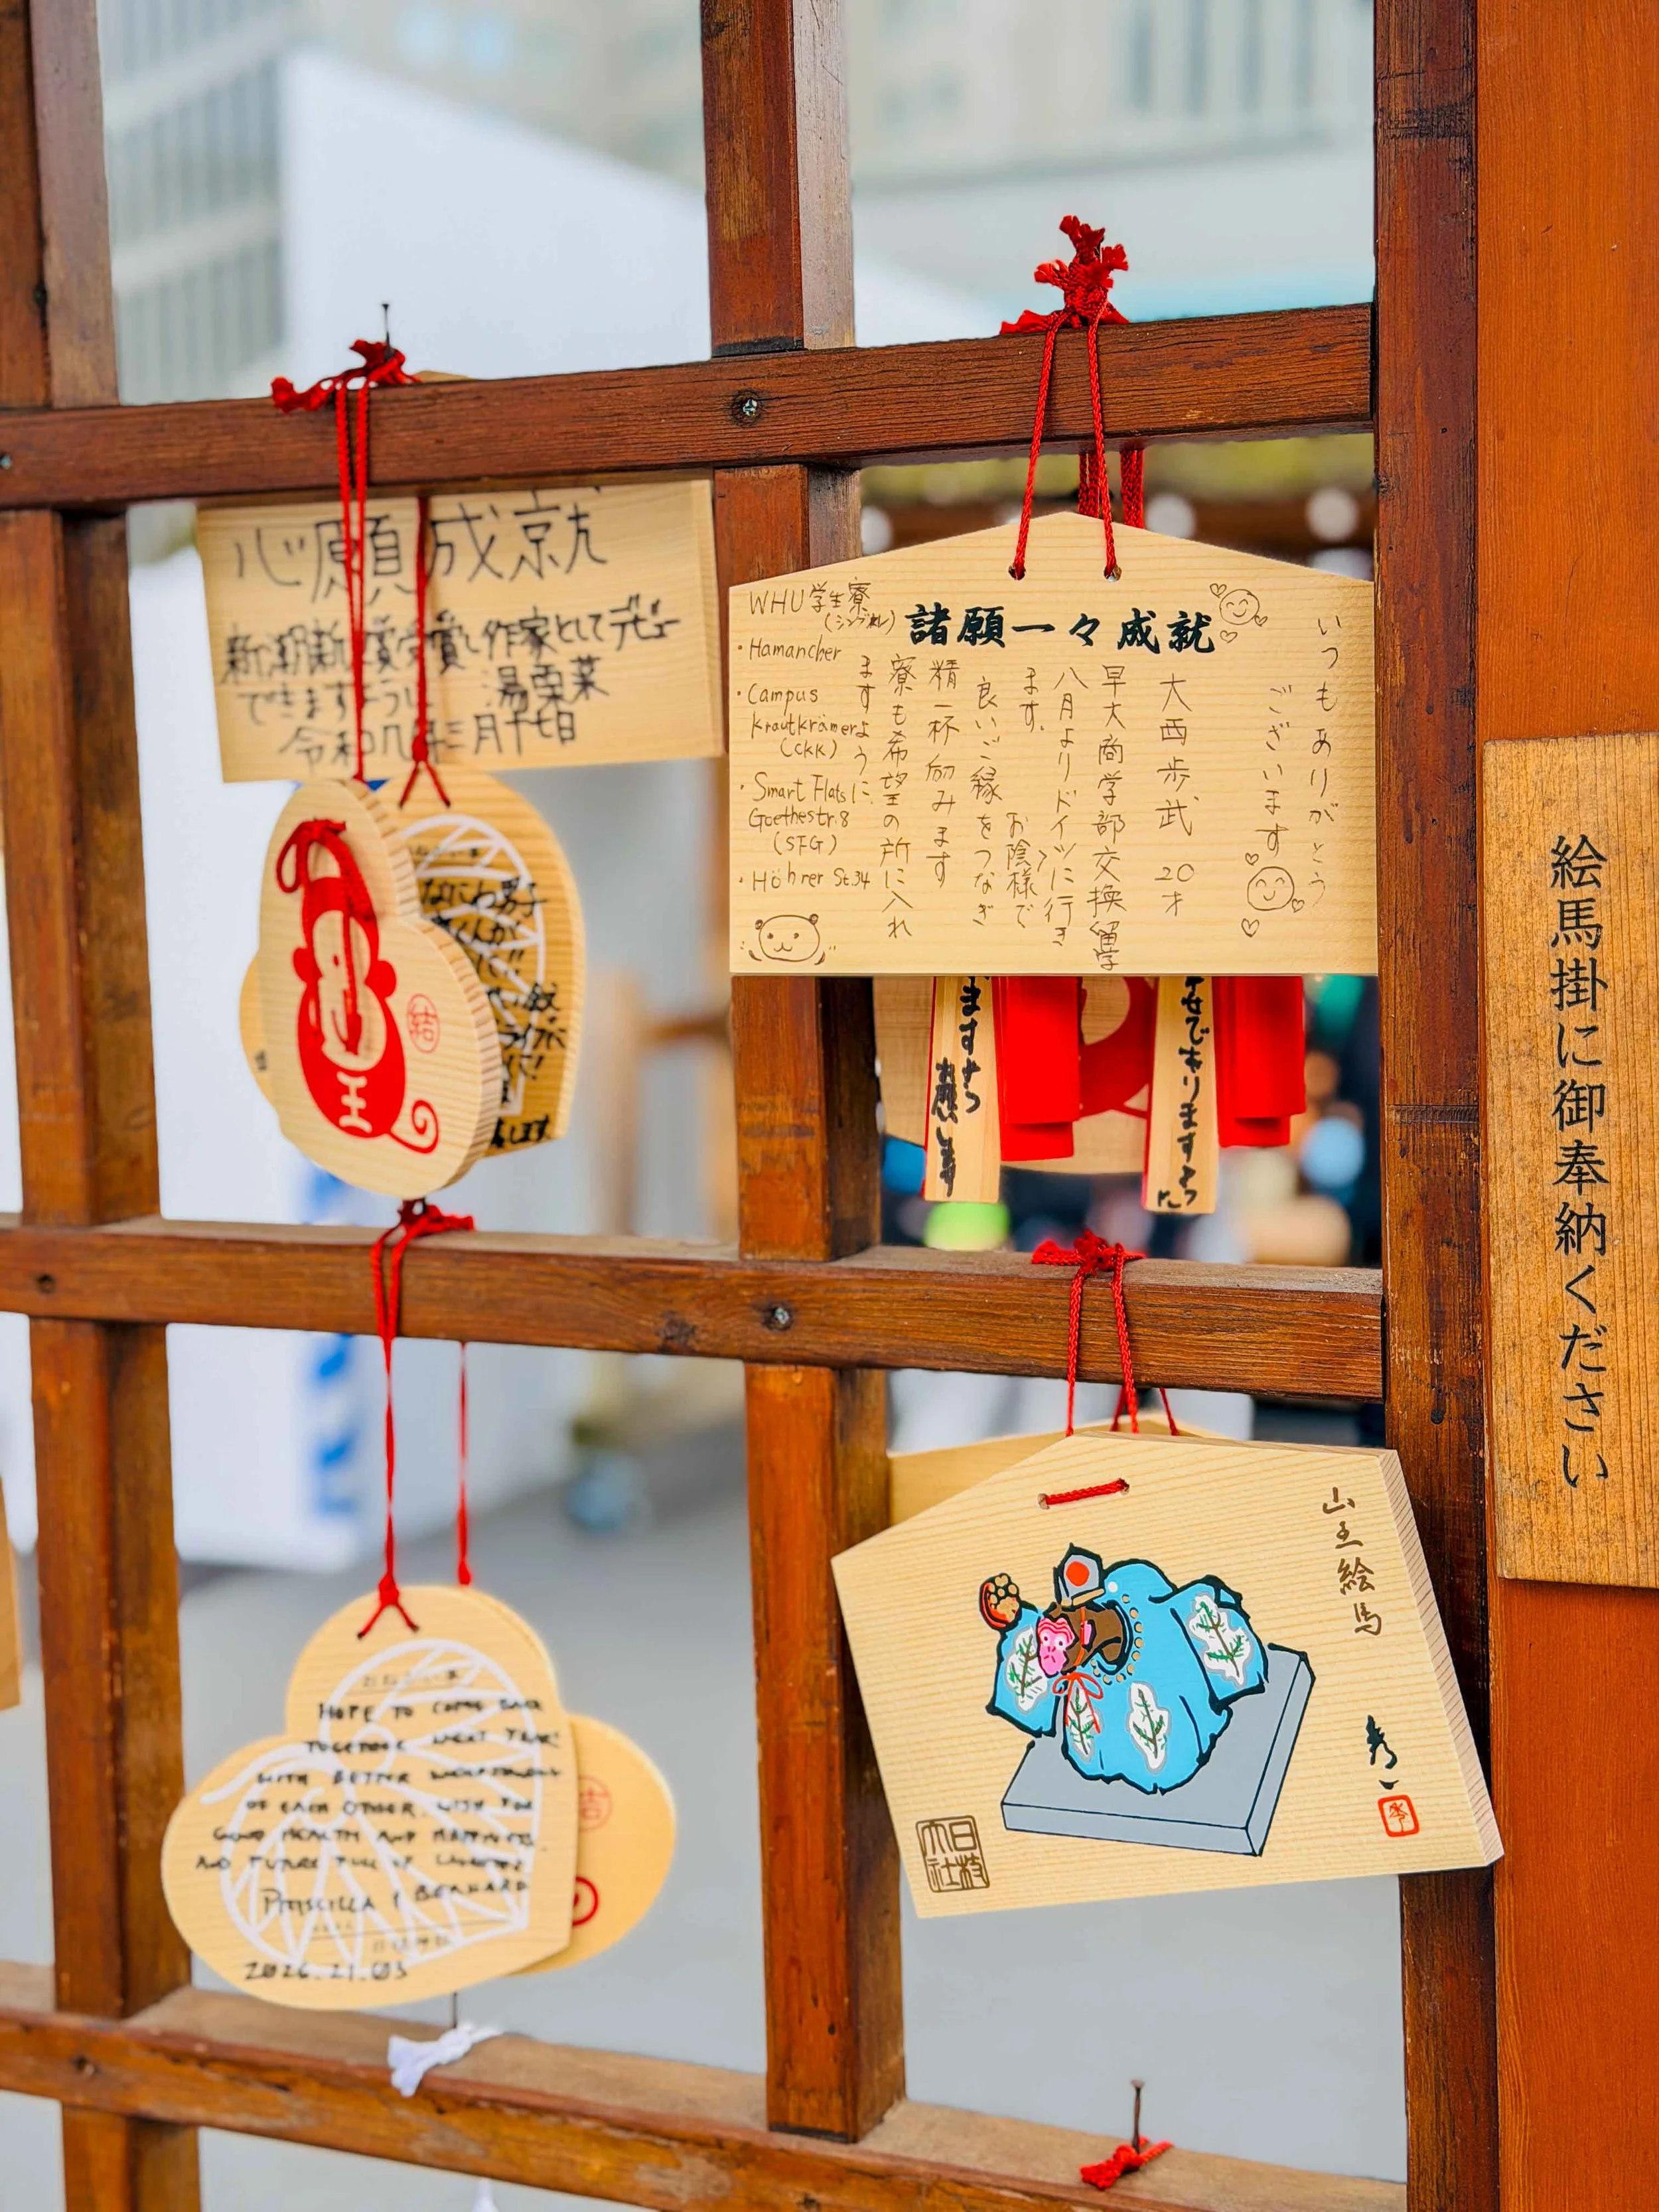 心願成就
新潮新人賞受賞し作家としてデビュー
できますように 湯栗菜
令和八年三月十七日
結
王
なにわ男子
くんが
します
WHU学生寮
(シングル)
・Hamancher
・Campus
Krautkrämer
(CKK)
・Smart Flats
Goethestr.8
(SFG)
・Höhrer St.34
諸願一々成就
いつもありがとう
ございます
大西歩武 20才
早大商学部交換留学
八月よりドイツに行き
ます。お陰様で
良いご縁をつなぎ
精一杯励みます
寮も希望の所に入れ
ますように
ますよう
お願います
せでありますよう
に
絵馬掛に御奉納ください
HOPE TO COME BACK
TOGETHER NEXT YEAR!
WITH BETTER
OF EACH OTHER. WISH FOR
GOOD HEALTH AND HAPPINESS.
AND FUTURE FULL OF LAUGHTER
PRISCILLA & BERNARD
2026.21.03
結
山王絵馬
秀一
日枝
大社